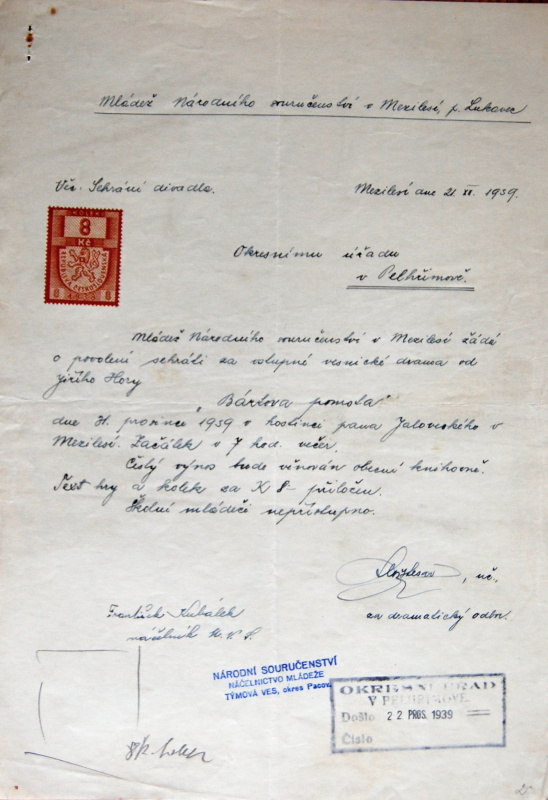 Mládež Národního souručenství v Mezilesí, p. Lukavec
Věc. Sehrání divadla.
Mezilesí dne 21. XI. 1939.
KOLEK
8
Kč
REPUBLIKA ČESKOSLOVENSKÁ
8 8
Okresnímu úřadu
v Pelhřimově.
Mládež Národního souručenství v Mezilesí žádá
o povolení sehráti za vstupné vesnické drama od
Jiřího Hory
"Bártova pomsta"
dne 31. prosince 1939 v hostinci pana Jaloveckého v
Mezilesí. Začátek v 7 hod. večer.
Čistý výnos bude věnován obecní knihovně.
Text hry a kolek za K 8- přiložen.
Školní mládeži nepřístupno.
, uč.
za dramatický odbor.
František Kubálek
náčelník M. N. S.
NÁRODNÍ SOURUČENSTVÍ
NÁČELNICTVO MLÁDEŽE
TÝMOVÁ VES, okres Pacov.
OKRESNÍ ÚŘAD
V PELHŘIMOVĚ
Došlo 22 PROS. 1939
Číslo